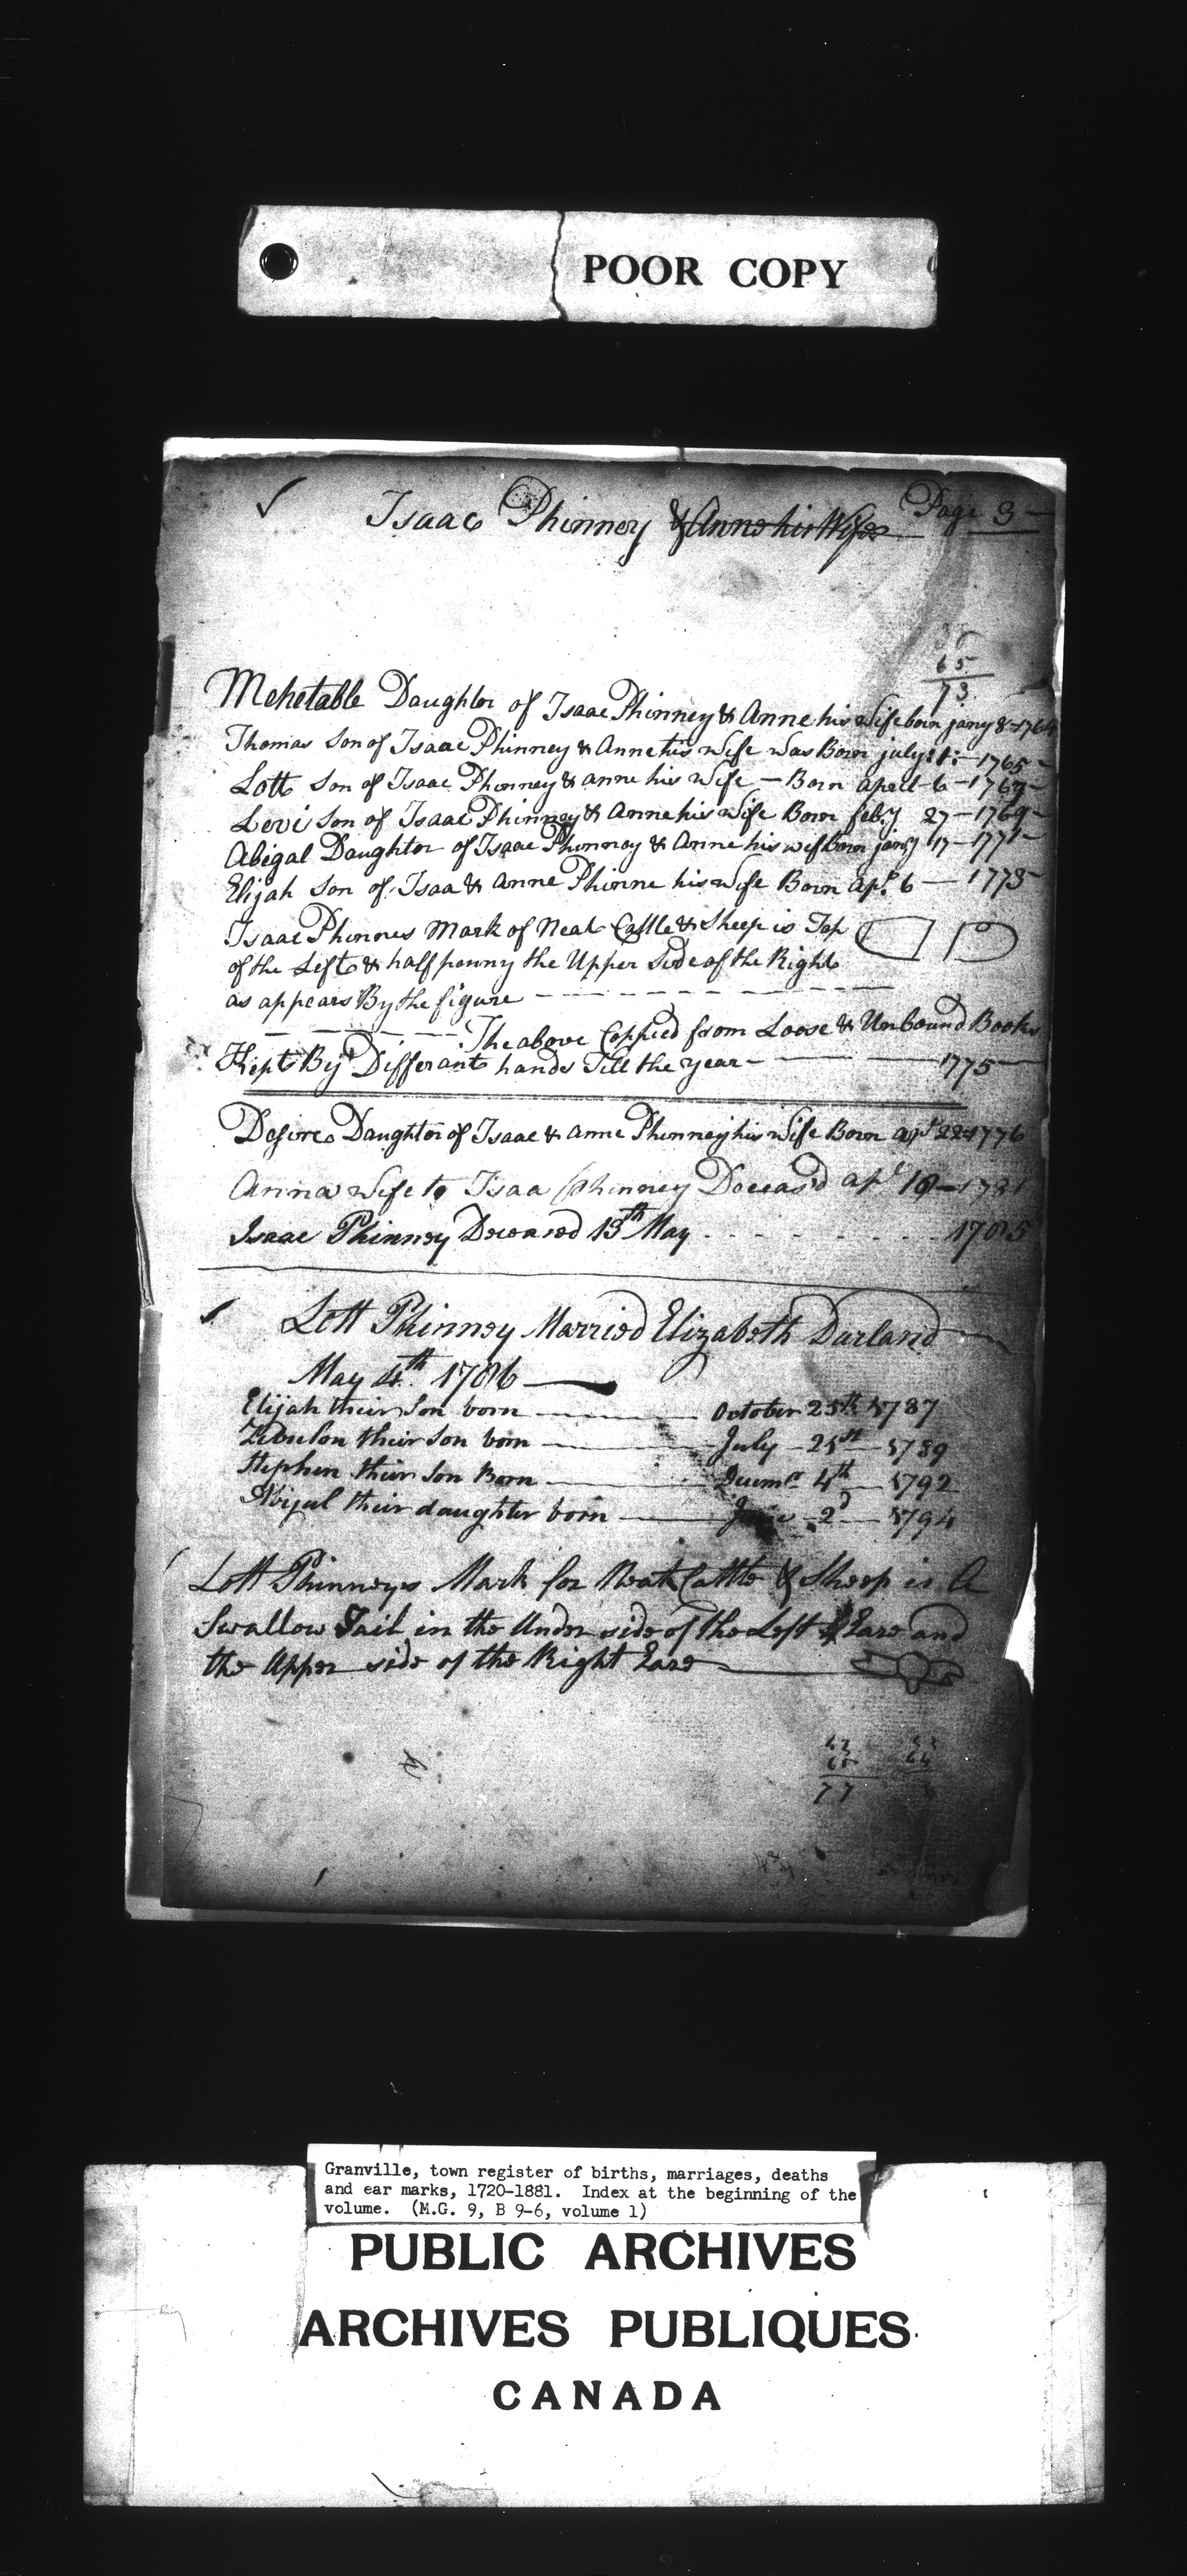 POOR COPY
Page 3
Isaac Phinney & Anne his Wife
65
73
Mehetable Daughter of Isaac Phinney & Anne his Wife born jany 8 1764
Thomas Son of Isaac Phinney & Anne his Wife Was Born july 1: 1765
Lott Son of Isaac Phinney & anne his Wife Born April 6 1767
Levi Son of Isaac Phinney & Anne his Wife Born feby 27 1769
Abigal Daughter of Isaac Phinney & Anne his wif born jany 17 1771
Elijah Son of Isaa & Anne Phinne his Wife Born apl 6 1773
Isaac Phinnes Mark of Neat Cattle & Sheep is Top
of the Left & half penny the Upper Side of the Right
as appears By the figure
The above Coppied from Loose & Unbound Books
Kept By Differant hands Till the year 1775
Desire Daughter of Isaac & Anne Phinney his Wife Born apl 22 1776
Anna Wife to Isaa Phinney Deceasd apl 18 1781
Isaac Phinney Deceased 13th May 1785
Lott Phinney Married Elizabeth Durland
May 4th 1786
Elijah their Son born October 25th 1787
Zebulon their Son born July 21st 1789
Stephen their Son Born Decemr 4th 1792
Abijal their daughter born June 2d 1794
Lott Phinneys Mark for Neat Cattle & Sheep is A
Swallow Tail in the Under side of the Left Eare and
the Upper side of the Right Eare
77
Granville, town register of births, marriages, deaths
and ear marks, 1720-1881. Index at the beginning of the
volume. (M.G. 9, B 9-6, volume 1)
PUBLIC ARCHIVES
ARCHIVES PUBLIQUES
CANADA